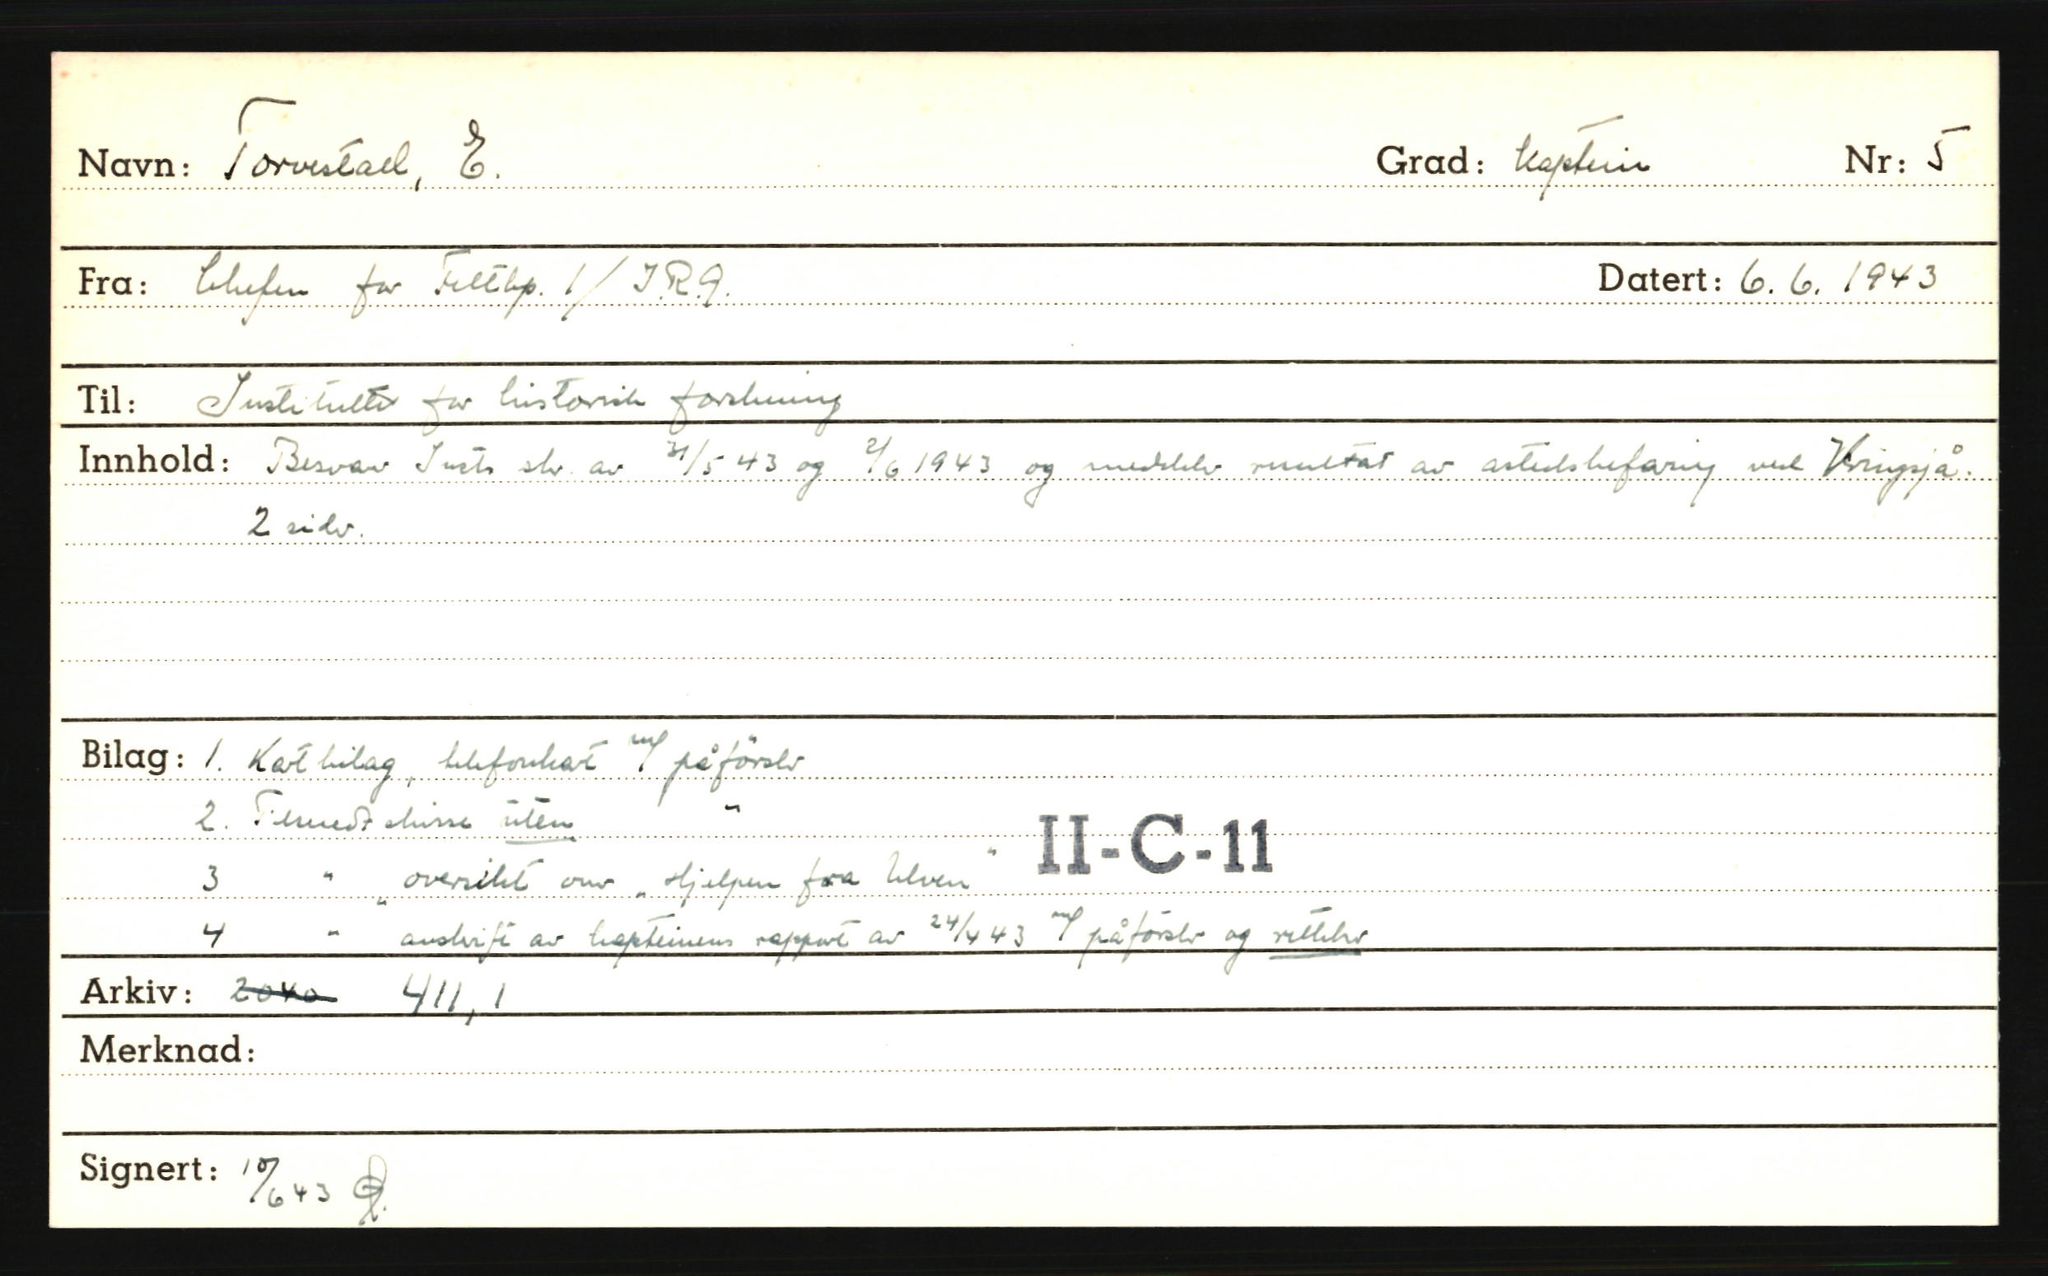 Navn: Torvestad, E. Grad: Kaptein Nr: 5
Fra: Chefen for Feltkp. 1/I.R.9. Datert: 6.6.1943
Til: Instituttet for historisk forskning
Innhold: Besvarer Insts skr. av 31/5 43 og 2/6 1943 og meddeler resultat av åstedsbefaring ved Kringsjå.
2 sider.
Bilag: 1. Kartbilag, telefonkart m/ påførsler
2. skisse uten "
3 " " oversikt over „Hjelpen fra Ulven"
4 " " avskrift av kapteinens rapport av 24/4 43 m/ påførsler og rettelser
II-C-11
Arkiv: 2040 411,1
Merknad:
Signert: 10/6 43